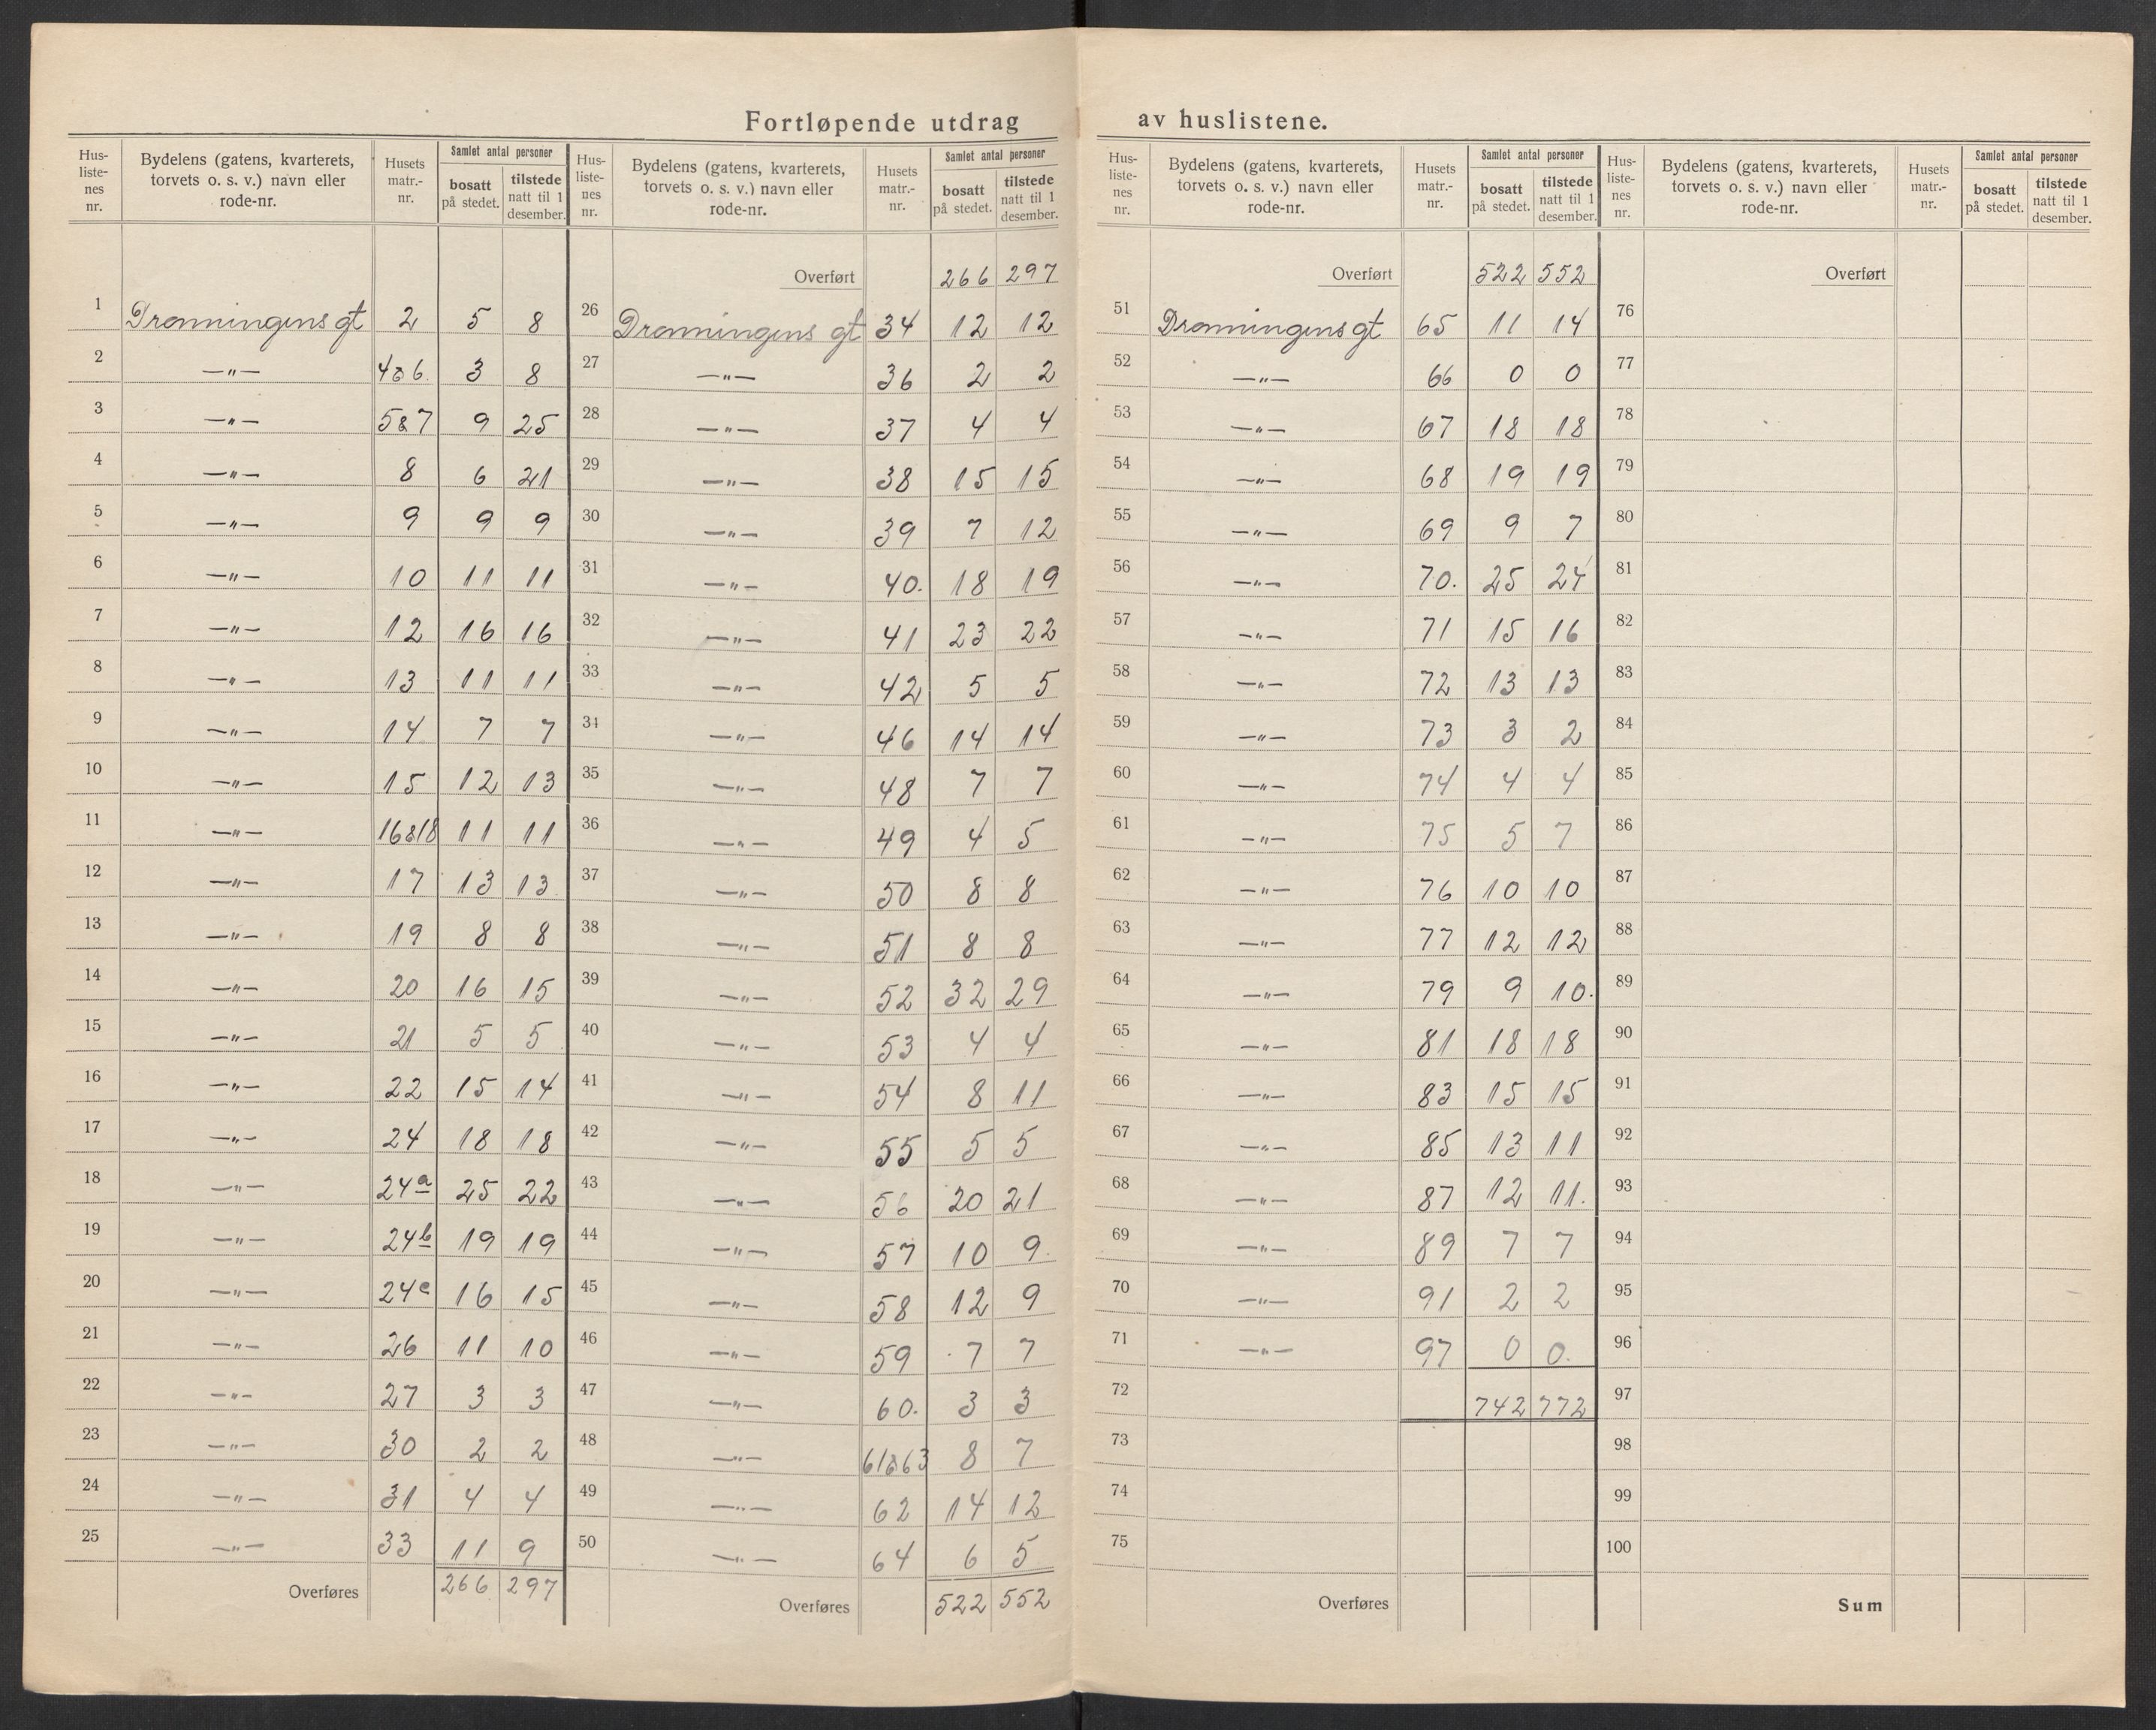 Fortløpende utdrag av huslistene.
Hus-listenes nr. | Bydelens (gatens, kvarterets, torvets o. s. v.) navn eller rode-nr. | Husets matr.-nr. | Samlet antal personer bosatt på stedet. | tilstede natt til 1 desember.
1 Dronningens gt 2 5 8
2 —"— 4&6. 3 8
3 —"— 5&7 9 25
4 —"— 8 6 21
5 —"— 9 9 9
6 —"— 10 11 11
7 —"— 12 16 16
8 —"— 13 11 11
9 —"— 14 7 7
10 —"— 15 12 13
11 —"— 16&18 11 11
12 —"— 17 13 13
13 —"— 19 8 8
14 —"— 20 16 15
15 —"— 21 5 5
16 —"— 22 15 14
17 —"— 24 18 18
18 —"— 24a 25 22
19 —"— 24b 19 19
20 —"— 24c 16 15
21 —"— 26 11 10
22 —"— 27 3 3
23 —"— 30 2 2
24 —"— 31 4 4
25 —"— 33 11 9
Overføres 266 297
Hus-listenes nr. | Bydelens (gatens, kvarterets, torvets o. s. v.) navn eller rode-nr. | Husets matr.-nr. | Samlet antal personer bosatt på stedet. | tilstede natt til 1 desember.
Overført 266 297
26 Dronningens gt 34 12 12
27 —"— 36 2 2
28 —"— 37 4 4
29 —"— 38 15 15
30 —"— 39 7 12
31 —"— 40. 18 19
32 —"— 41 23 22
33 —"— 42 5 5
34 —"— 46 14 14
35 —"— 48 7 7
36 —"— 49 4 5
37 —"— 50 8 8
38 —"— 51 8 8
39 —"— 52 32 29
40 —"— 53 4 4
41 —"— 54 8 11
42 —"— 55 5 5
43 —"— 56 20 21
44 —"— 57 10 9.
45 —"— 58 12 9
46 —"— 59 7 7
47 —"— 60. 3 3
48 —"— 61&63 8 7
49 —"— 62 14 12
50 —"— 64 6 5
Overføres 522 552
Hus-listenes nr. | Bydelens (gatens, kvarterets, torvets o. s. v.) navn eller rode-nr. | Husets matr.-nr. | Samlet antal personer bosatt på stedet. | tilstede natt til 1 desember.
Overført 522 552
51 Dronningens gt 65 11 14
52 —"— 66 0 0
53 —"— 67 18 18
54 —"— 68 19 19
55 —"— 69 9 7
56 —"— 70. 25 24
57 —"— 71 15 16
58 —"— 72 13 13
59 —"— 73 3 2
60 —"— 74 4 4
61 —"— 75 5 7
62 —"— 76 10 10
63 —"— 77 12 12
64 —"— 79 9 10.
65 —"— 81 18 18
66 —"— 83 15 15
67 —"— 85 13 11
68 —"— 87 12 11.
69 —"— 89 7 7
70 —"— 91 2 2
71 —"— 97 0 0.
72 742 772
73
74
75
Overføres
Hus-listenes nr. | Bydelens (gatens, kvarterets, torvets o. s. v.) navn eller rode-nr. | Husets matr.-nr. | Samlet antal personer bosatt på stedet. | tilstede natt til 1 desember.
Overført
76
77
78
79
80
81
82
83
84
85
86
87
88
89
90
91
92
93
94
95
96
97
98
99
100
Sum